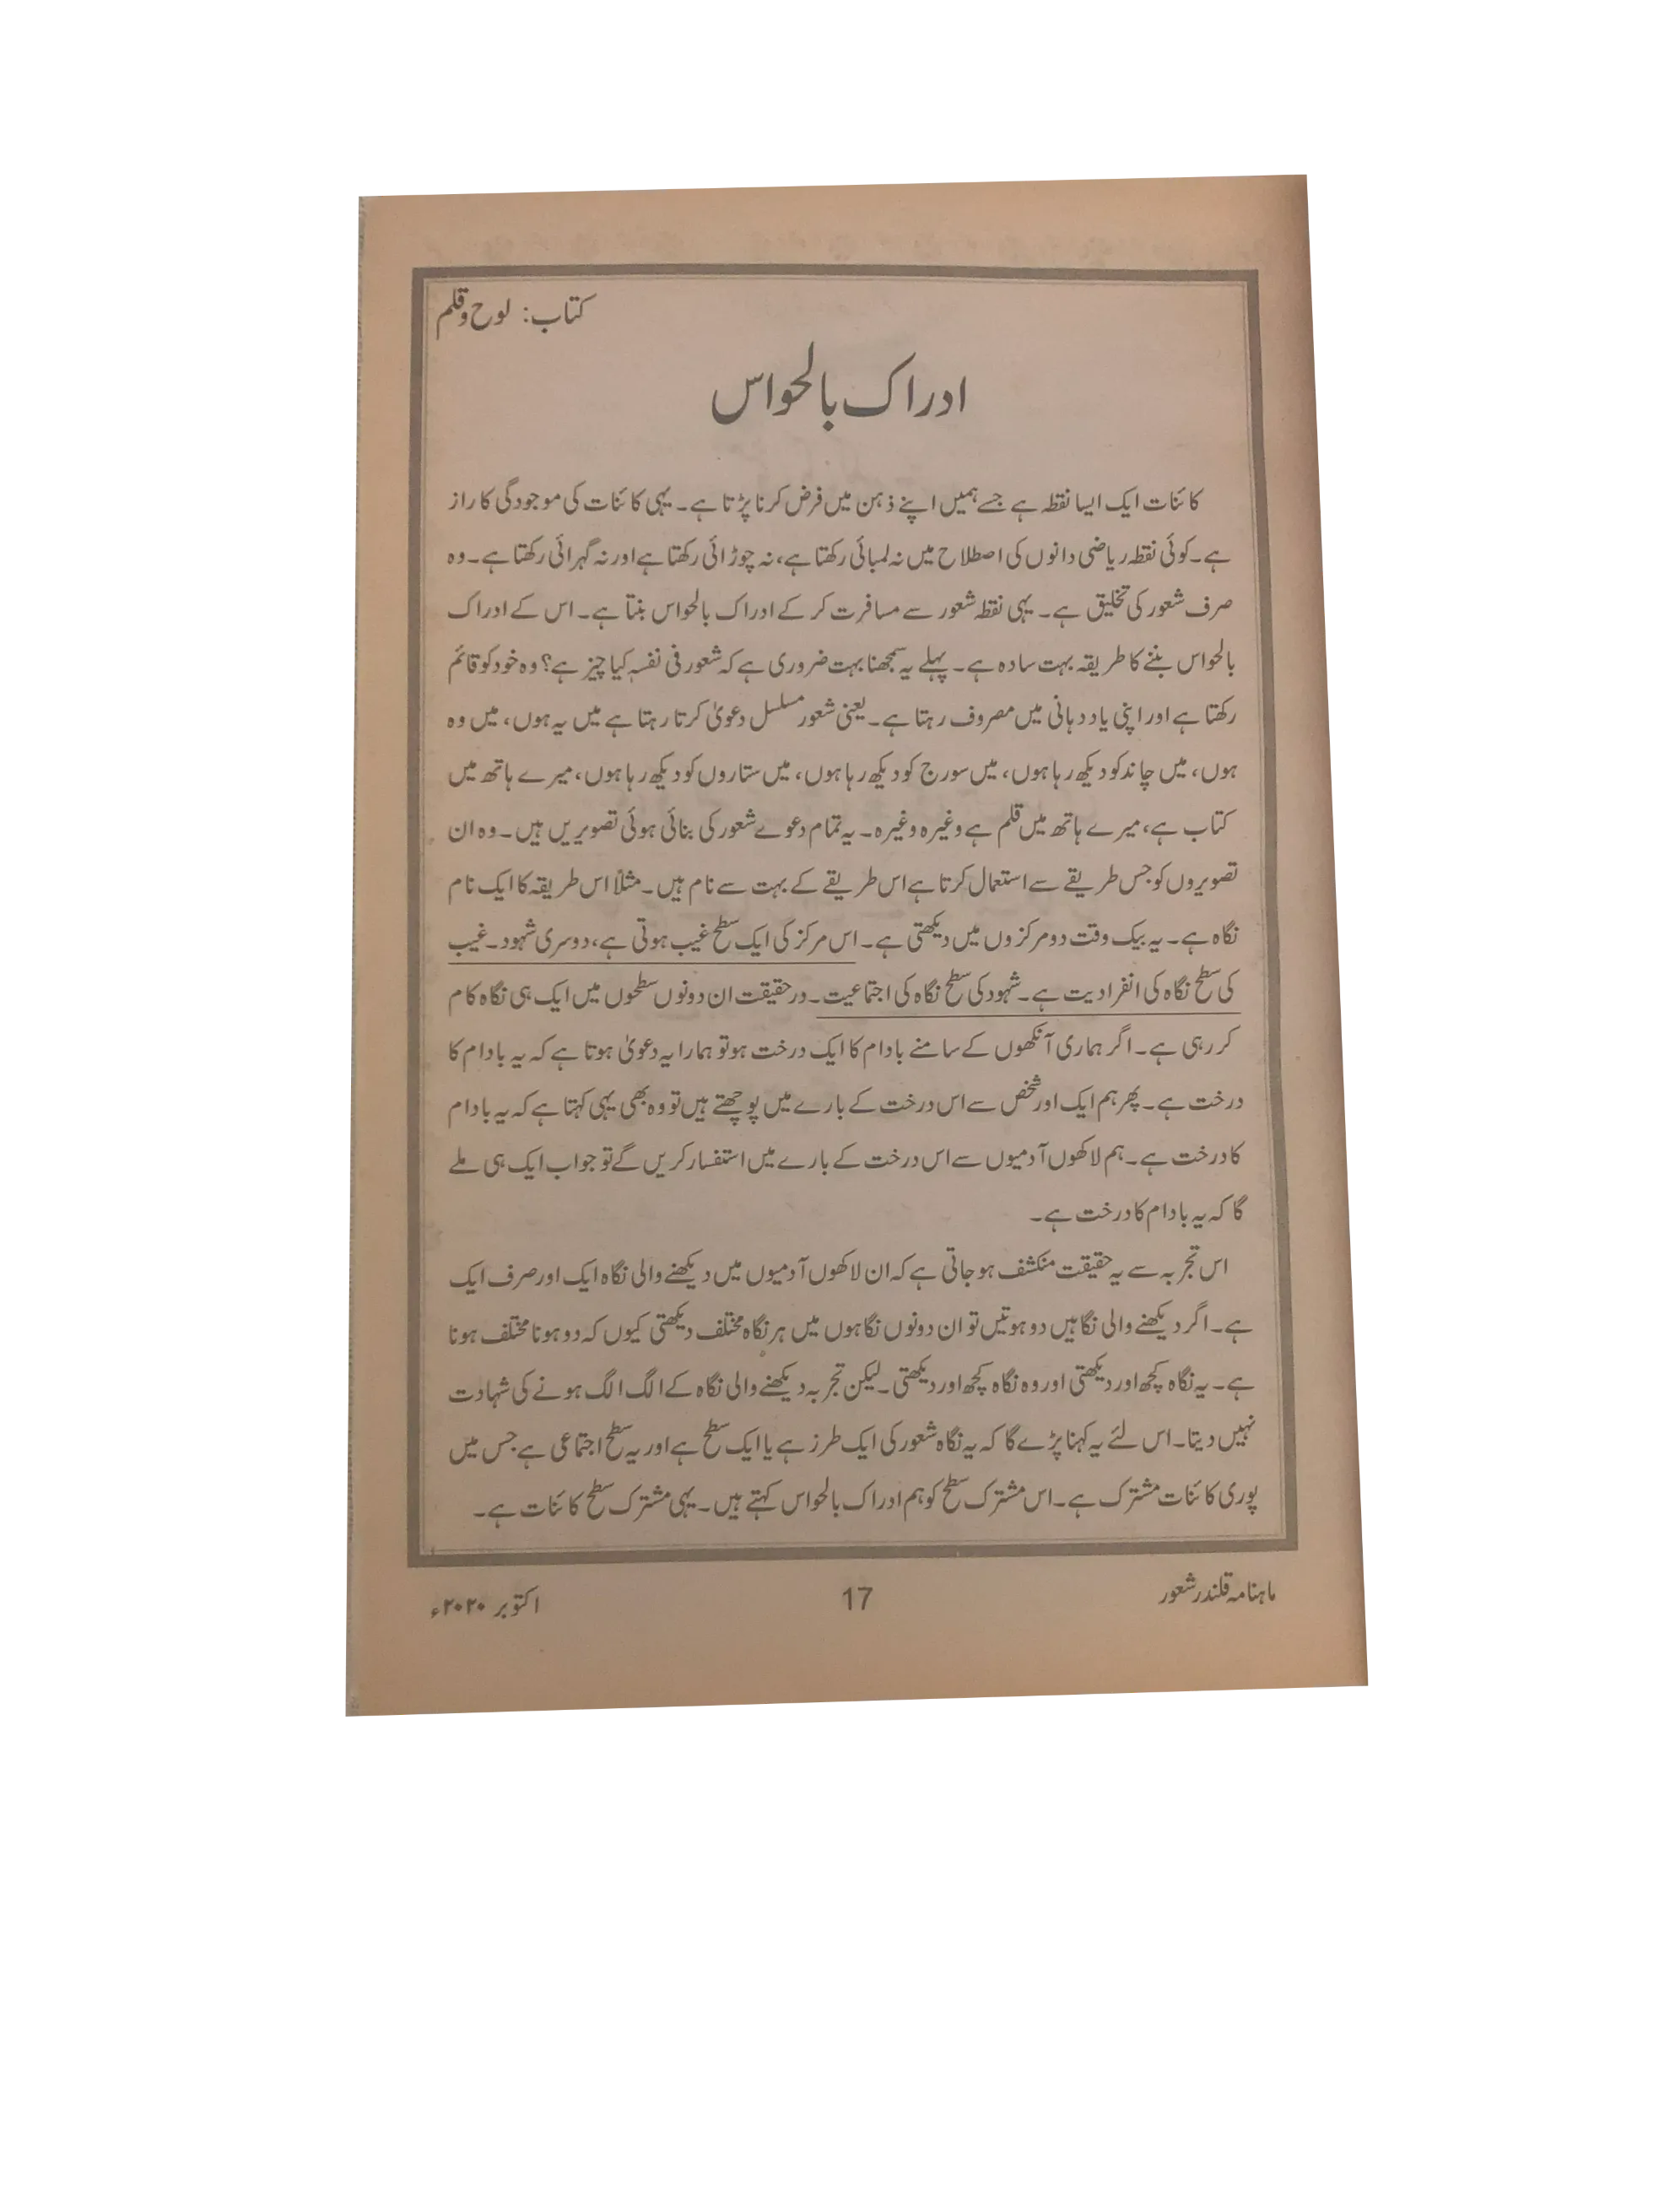 کتاب: لوح و قلم
ادراک بالحواس
کائنات ایک ایسا نقطہ ہے جسے ہمیں اپنے ذہن میں فرض کرنا پڑتا ہے۔ یہی کائنات کی موجودگی کا راز
ہے۔ کوئی نقطہ ریاضی دانوں کی اصطلاح میں نہ لمبائی رکھتا ہے، نہ چوڑائی رکھتا ہے اور نہ گہرائی رکھتا ہے۔ وہ
صرف شعور کی تخلیق ہے۔ یہی نقطہ شعور سے مسافرت کر کے ادراک بالحواس بنتا ہے۔ اس کے ادراک
بالحواس بننے کا طریقہ بہت سادہ ہے۔ پہلے یہ سمجھنا بہت ضروری ہے کہ شعور فی نفسہٖ کیا چیز ہے؟ وہ خود کو قائم
رکھتا ہے اور اپنی یاددہانی میں مصروف رہتا ہے۔ یعنی شعور مسلسل دعویٰ کرتا رہتا ہے میں یہ ہوں، میں وہ
ہوں، میں چاند کو دیکھ رہا ہوں، میں سورج کو دیکھ رہا ہوں، میں ستاروں کو دیکھ رہا ہوں، میرے ہاتھ میں
کتاب ہے، میرے ہاتھ میں قلم ہے وغیرہ وغیرہ۔ یہ تمام دعوے شعور کی بنائی ہوئی تصویریں ہیں۔ وہ ان
تصویروں کو جس طریقے سے استعمال کرتا ہے اس طریقے کے بہت سے نام ہیں۔ مثلاً اس طریقہ کا ایک نام
نگاہ ہے۔ یہ بیک وقت دو مرکزوں میں دیکھتی ہے۔ اس مرکز کی ایک سطح غیب ہوتی ہے، دوسری شہود۔ غیب
کی سطح نگاہ کی انفرادیت ہے۔ شہود کی سطح نگاہ کی اجتماعیت۔ درحقیقت ان دونوں سطحوں میں ایک ہی نگاہ کام
کر رہی ہے۔ اگر ہماری آنکھوں کے سامنے بادام کا ایک درخت ہو تو ہمارا یہ دعویٰ ہوتا ہے کہ یہ بادام کا
درخت ہے۔ پھر ہم ایک اور شخص سے اس درخت کے بارے میں پوچھتے ہیں تو وہ بھی یہی کہتا ہے کہ یہ بادام
کا درخت ہے۔ ہم لاکھوں آدمیوں سے اس درخت کے بارے میں استفسار کریں گے تو جواب ایک ہی ملے
گا کہ یہ بادام کا درخت ہے۔
اس تجربہ سے یہ حقیقت منکشف ہو جاتی ہے کہ ان لاکھوں آدمیوں میں دیکھنے والی نگاہ ایک اور صرف ایک
ہے۔ اگر دیکھنے والی نگاہیں دو ہوتیں تو ان دونوں نگاہوں میں ہر نگاہ مختلف دیکھتی کیوں کہ دو ہونا مختلف ہونا
ہے۔ یہ نگاہ کچھ اور دیکھتی اور وہ نگاہ کچھ اور دیکھتی۔ لیکن تجربہ دیکھنے والی نگاہ کے الگ الگ ہونے کی شہادت
نہیں دیتا۔ اس لئے یہ کہنا پڑے گا کہ یہ نگاہ شعور کی ایک طرز ہے یا ایک سطح ہے اور یہ سطح اجتماعی ہے جس میں
پوری کائنات مشترک ہے۔ اس مشترک سطح کو ہم ادراک بالحواس کہتے ہیں۔ یہی مشترک سطح کائنات ہے۔
ماہنامہ قلندر شعور
17
اکتوبر ۲۰۲۰ء